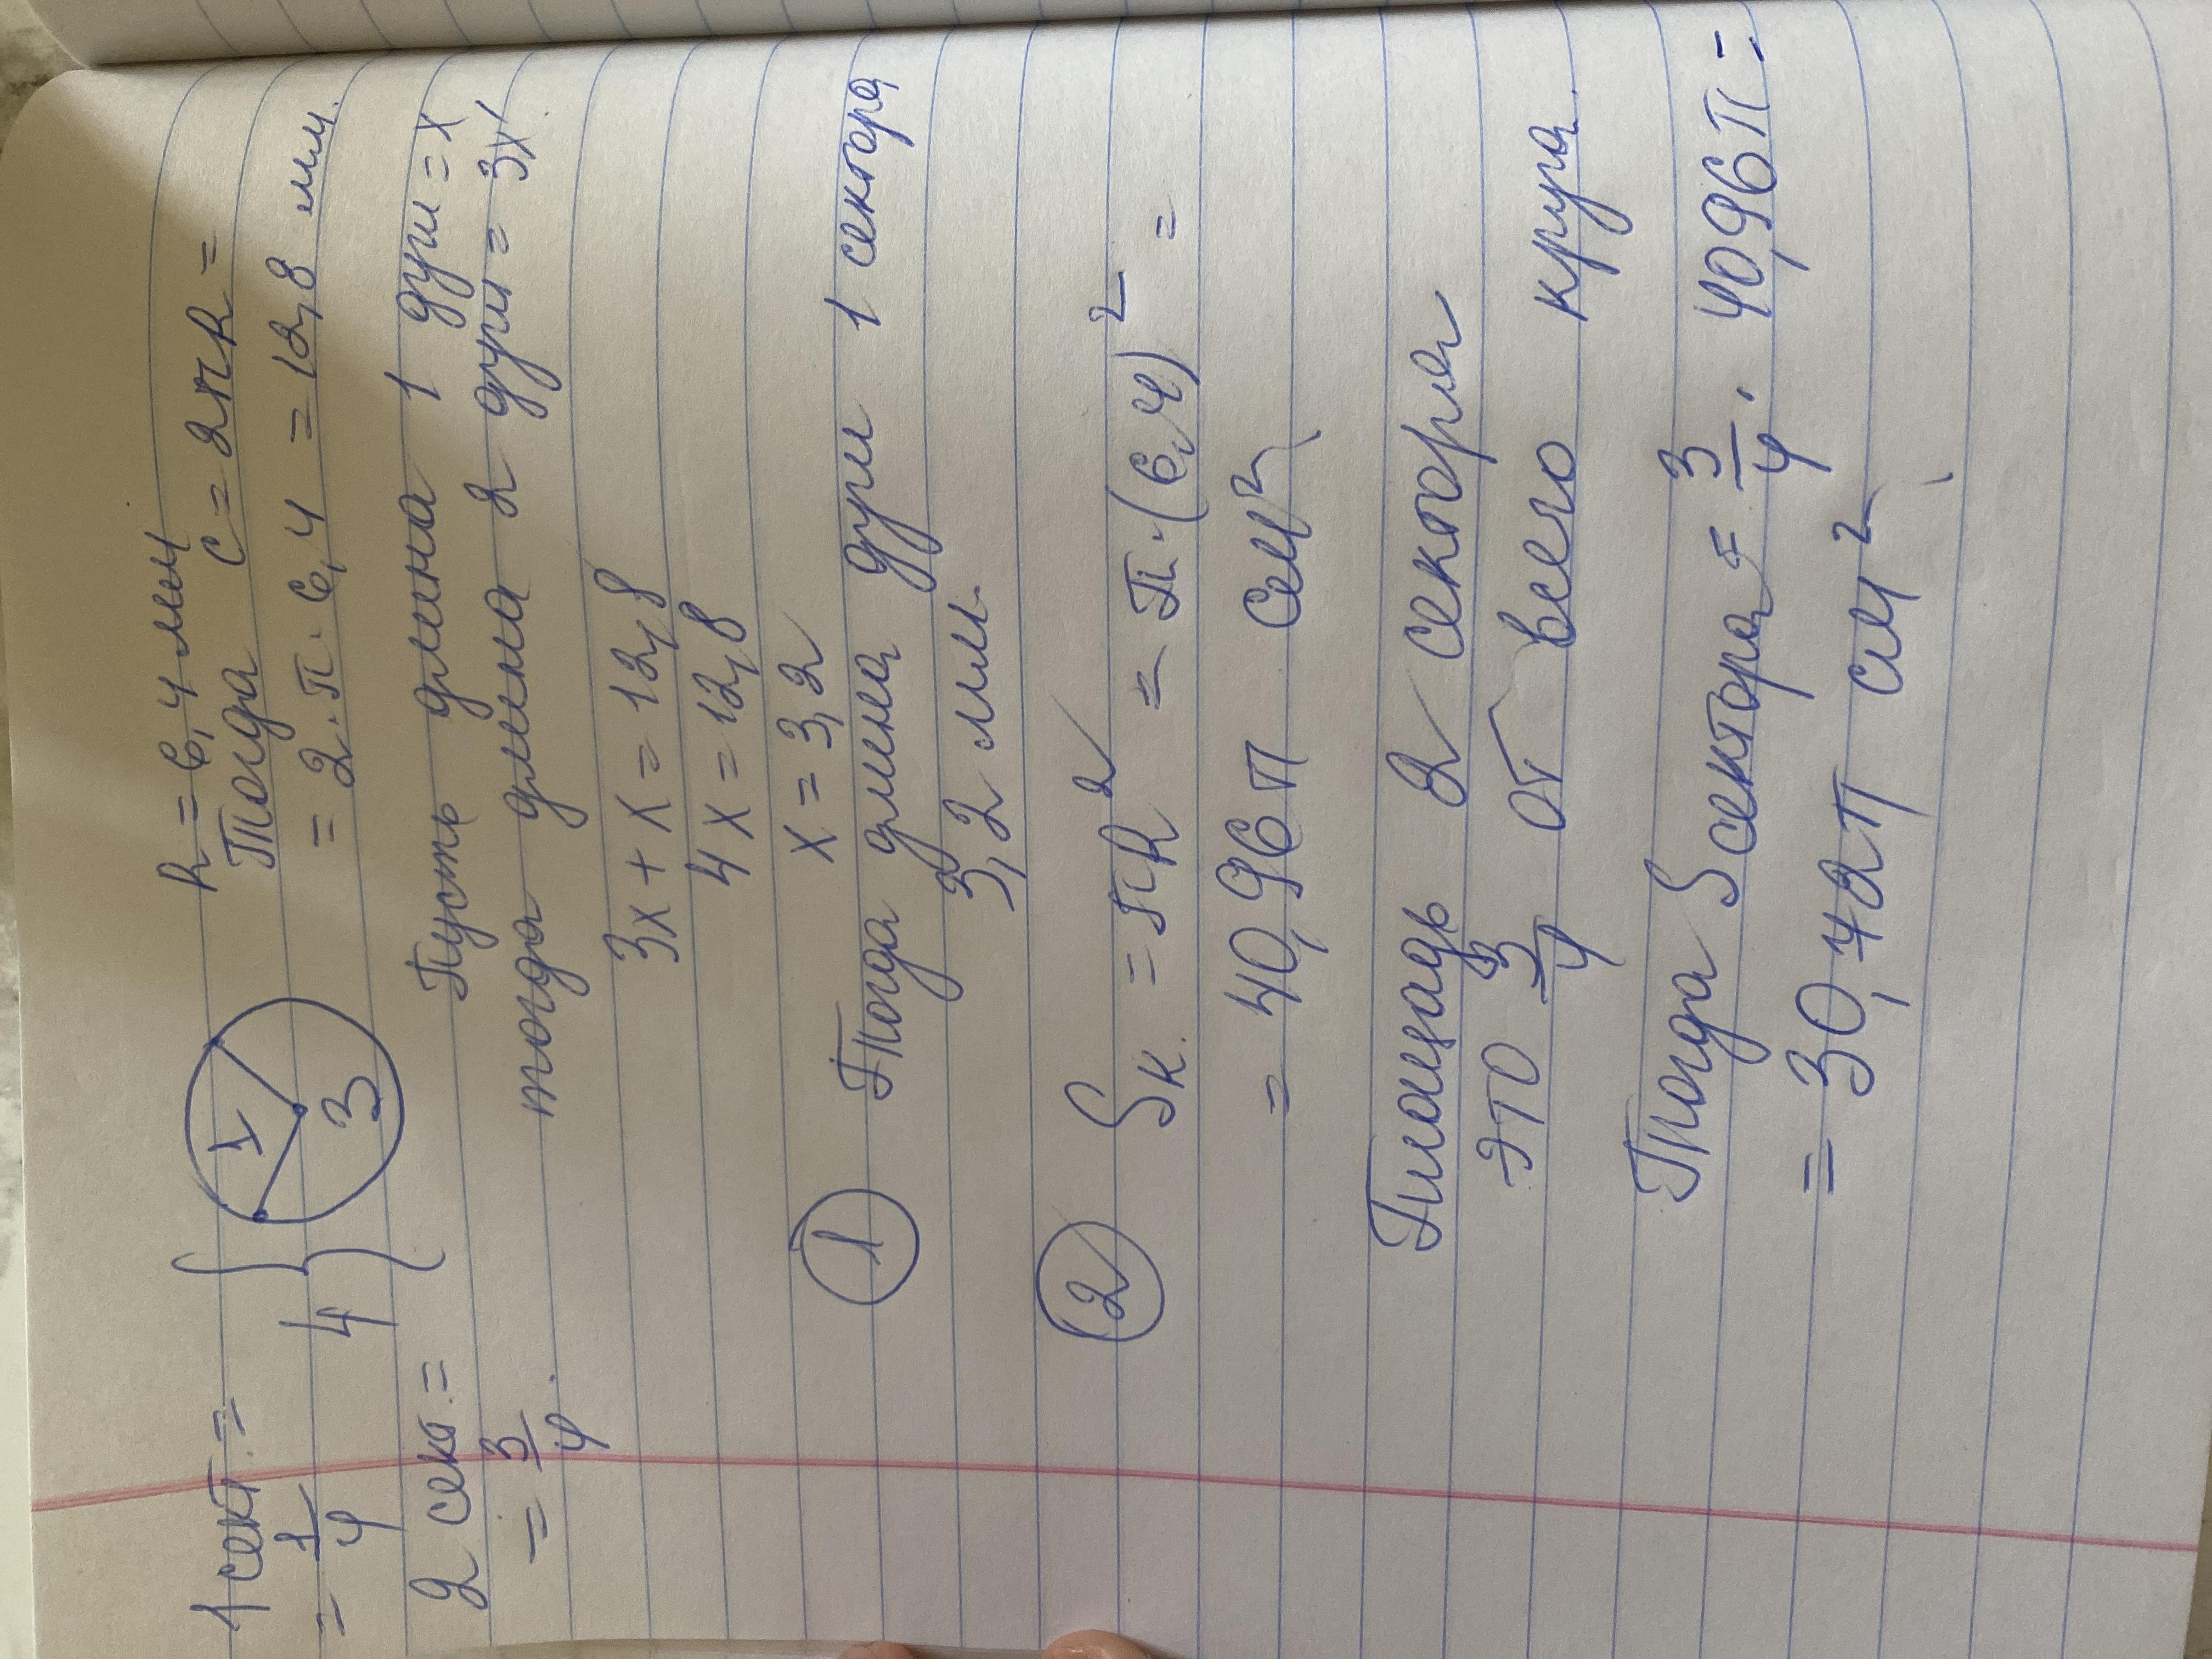 1 сект. =
= 1/4
2 сект. =
= 3/4.
4
1
3
R = 6,4 мм
Тогда C = 2πR =
= 2·π·6,4 = 12,8 мм.
Пусть длина 1 дуги = x
тогда длина 2 дуги = 3x
3x + x = 12,8
4x = 12,8
x = 3,2
① Тогда длина дуги 1 сектора
3,2 мм.
② Sк. = πR² = π·(6,4)² =
= 40,96π см²
Площадь 2 сектора
это 3/4 от всего круга.
Тогда Sсектора = 3/4 · 40,96π =
= 30,72π см²